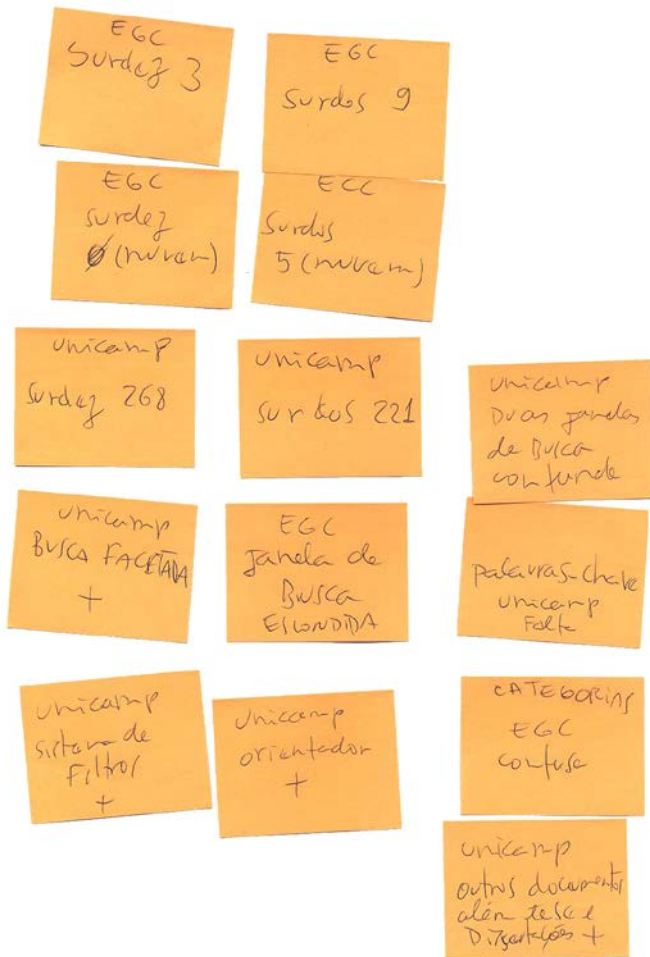 EGC
Surdez 3
EGC
Surdos 9
EGC
surdez
0 (nuvem)
EGC
Surdos
5 (nuvem)
Unicamp
Surdez 268
Unicamp
surdos 221
Unicamp
Duas janelas
de Busca
confunde
Unicamp
BUSCA FACETADA
+
EGC
janela de
Busca
ESCONDIDA
palavras-chave
Unicamp
Falta
Unicamp
sistema de
Filtros
+
Unicamp
orientador
+
CATEGORIAS
EGC
confusa
Unicamp
outros documentos
além tese e
Dissertações +